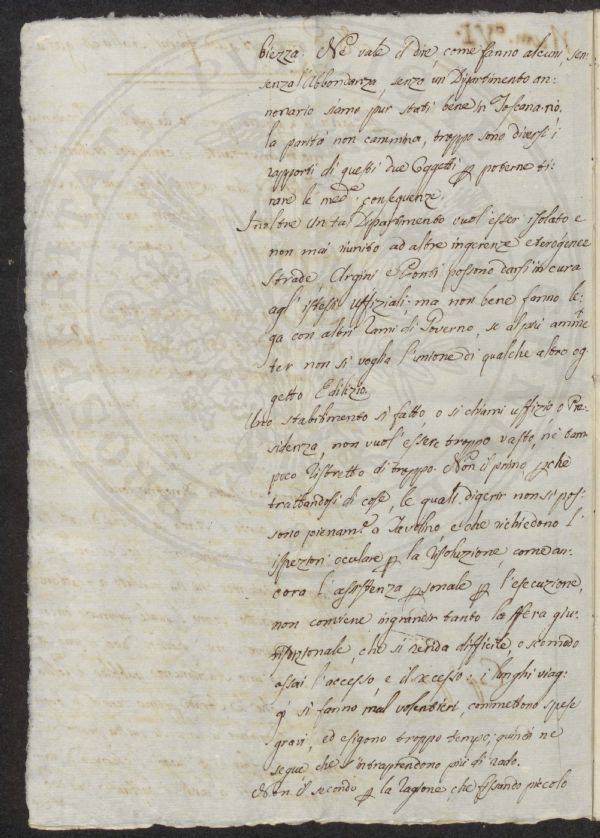 biezza. Nè vale il dire, come fanno alcuni, sen-
senza l'Abbondanza, senza un Dipartimento an-
nonario siamo pur stati bene in Toscana: nò.
la parità non cammina, troppo sono diversi i
rapporti di questi due Oggetti p poterne ti-
rare le med.e conseguenze.
Inoltre un tal Dipartimento vuol' esser isolato e
non mai riunito ad altre ingerenze eterogenee
strade, Argini e Ponti possono darsi in cura
agl' istessi Uffiziali: ma non bene fanno le-
ga con altri rami di Governo, se al più amet-
ter non si voglia l'unione di qualche altro og-
getto Edilizio.
Uno stabilimento si fatto, o si chiami uffizio o Pre-
sidenza, non vuol' essere troppo vasto, nè tam
poco ristretto di troppo. Non il primo, pchè
trattandosi di cose, le quali digerir non si pos-
sono pienam.e a Tavolino e che richiedono l'
ispezion oculare p la risoluzione, come an-
cora l'assistenza psonale p l'esecuzione,
non conviene ingrandir tanto la sfera giu-
risdizionale, che si renda difficile, o scomodo
assai l'accesso, e il recesso: i lunghi viag-
gi si fanno mal volentieri, commettono spese
gravi, ed esigono troppo tempo; quindi ne
segue che s'intraprendono più di rado.
Non il secondo p la ragione, che fissando piccolo